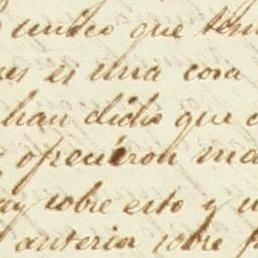 unico que ten
es es una cosa
han dicho que
ofrecieron ma
ay sobre esto y u
anterior sobre f